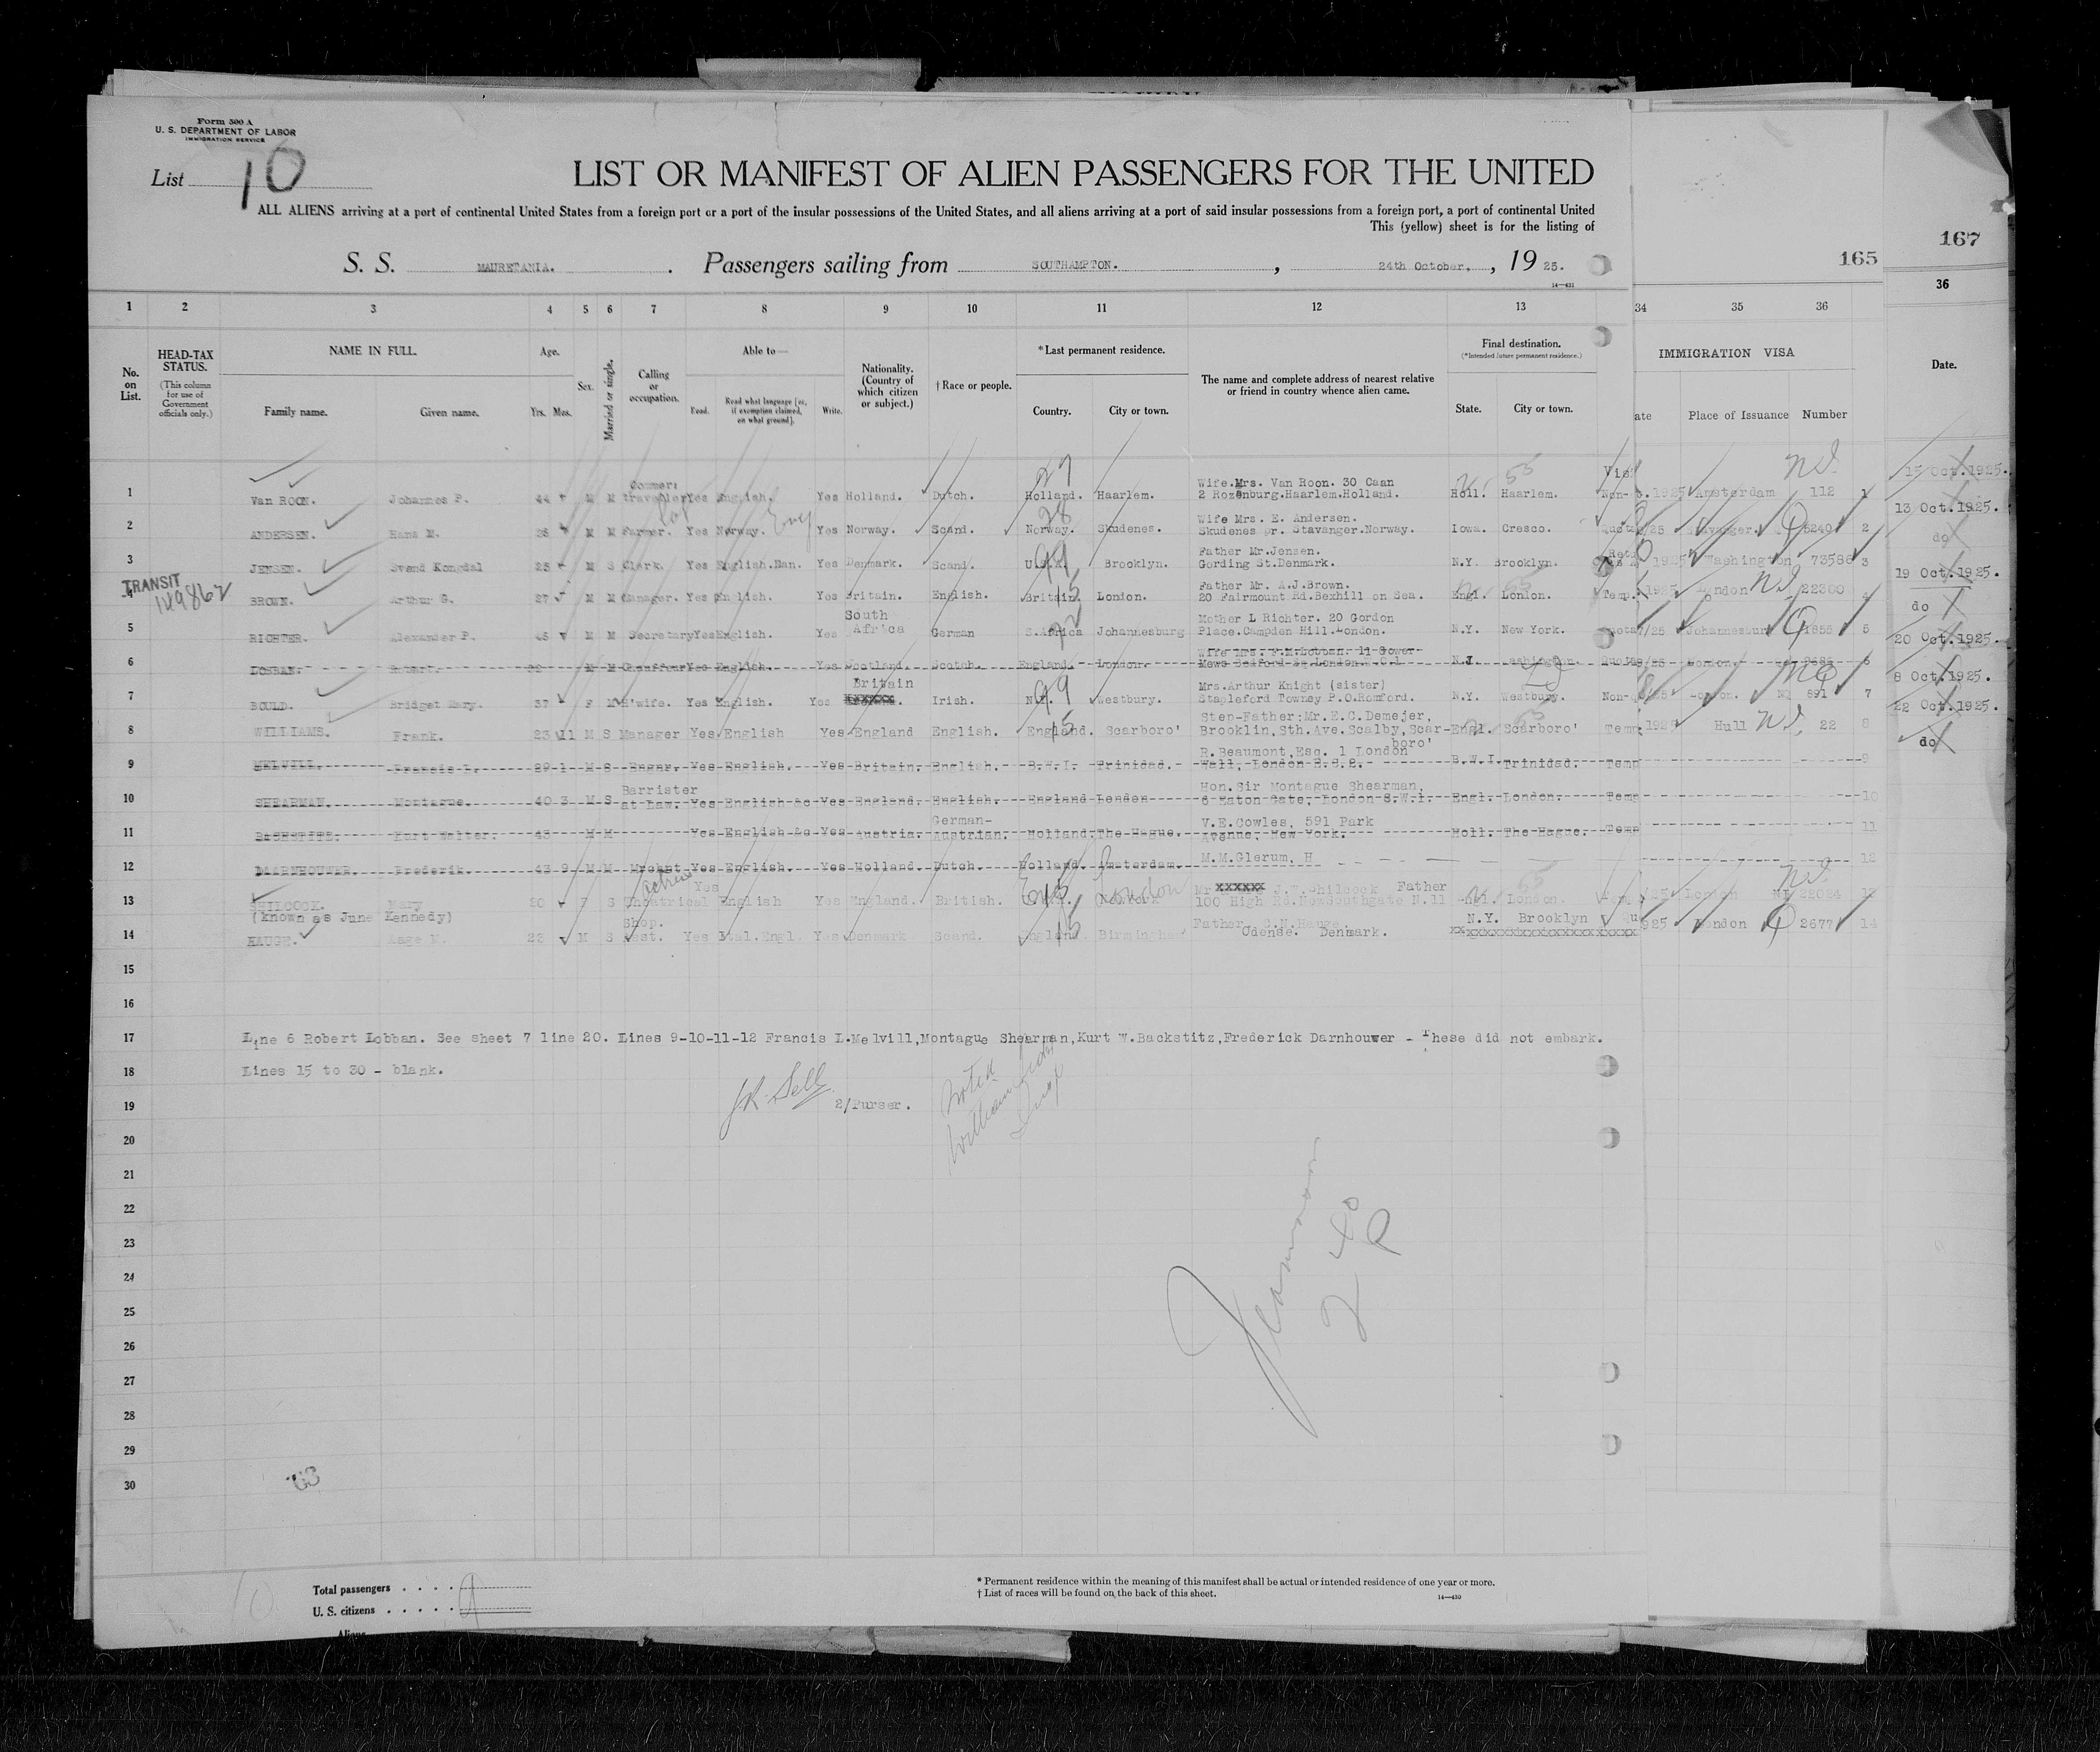 Form 500 A
U. S. DEPARTMENT OF LABOR
IMMIGRATION SERVICE
List 10
LIST OR MANIFEST OF ALIEN PASSENGERS FOR THE UNITED
ALL ALIENS arriving at a port of continental United States from a foreign port or a port of the insular possessions of the United States, and all aliens arriving at a port of said insular possessions from a foreign port, a port of continental United
This (yellow) sheet is for the listing of
S. S. MAURETANIA. Passengers sailing from SOUTHAMPTON. , 24th October, , 19 25.
14—431
165
167
1 2 3 4 5 6 7 8 9 10 11 12 13 34 35 36
36
No. on List.
HEAD-TAX STATUS.
(This column for use of Government officials only.)
NAME IN FULL.
Family name. Given name.
Age.
Yrs. Mos.
Sex.
Married or single.
Calling or occupation.
Able to—
Read. Read what language [or, if exemption claimed, on what ground]. Write.
Nationality. (Country of which citizen or subject.)
† Race or people.
* Last permanent residence.
Country. City or town.
The name and complete address of nearest relative or friend in country whence alien came.
Final destination.
(*Intended future permanent residence.)
State. City or town.
IMMIGRATION VISA
ate Place of Issuance Number
Date.
1 Van ROON. Johannes P. 44 M M Commer: traveller Yes English. Yes Holland. Dutch. Holland. Haarlem. Wife.Mrs. Van Roon. 30 Caan
2 Rozenburg.Haarlem.Holland. Holl. Haarlem. Non- 1925 Amsterdam 112 1
15 Oct.1925.
2 ANDERSEN. Hans M. 26 M M Farmer. Yes Norway. Yes Norway. Scand. Norway. Skudenes. Wife Mrs. E. Andersen.
Skudenes pr. Stavanger.Norway. Iowa. Cresco. Quota /25 Stavanger. 5240 2
13 Oct.1925.
do
3 JENSEN. Svend Kongdal 25 M S Clerk. Yes English.Dan. Yes Denmark. Scand. U.S.A. Brooklyn. Father Mr.Jensen.
Gording St.Denmark. N.Y. Brooklyn. 1925 Washington 73586 3
19 Oct.1925.
TRANSIT
149862
4 BROWN. Arthur G. 27 M M Manager. Yes English. Yes Britain. English. Britain. London. Father Mr. A.J.Brown.
20 Fairmount Rd.Bexhill on Sea. Engl. London. Temp. 1925 London 22300 4
do
5 RICHTER. Alexander P. 45 M M Secretary Yes English. Yes South Africa German S.Africa Johannesburg Mother L Richter. 20 Gordon
Place.Campden Hill.London. N.Y. New York. Quota /25 Johannesburg 1855 5
20 Oct.1925.
6 LOBBAN. Robert. 32 M M Chauffeur Yes English. Yes Scotland. Scotch. England. London. Wife Mrs. F.M.Lobban. 11 Gower
Mews Bedford Sq London.W.C.1 N.J. Washington. Quota /25 London. 6
8 Oct.1925.
7 BOULD. Bridget Mary. 37 F M H'wife. Yes English. Yes Britain Irish. N.Y. Westbury. Mrs.Arthur Knight (sister)
Stapleford Towney P.O.Romford. N.Y. Westbury. Non-Q /25 London. NQ 891 7
22 Oct.1925.
8 WILLIAMS. Frank. 23 11 M S Manager Yes English Yes England English. England. Scarboro' Step-Father:Mr.E.C.Demejer,
Brooklin,Sth.Ave.Scalby,Scarboro' Engl. Scarboro' Temp. 1925 Hull 22 8
do
9 MELVILL. Francis L. 29 1 M S Engnr. Yes English. Yes Britain. English. B.W.I. Trinidad. R.Beaumont,Esc. 1 London
Wall, London E.C.2. B.W.I. Trinidad. Temp 9
10 SHEARMAN. Montague. 40 3 M S Barrister at Law. Yes English &c Yes England. English. England London Hon.Sir Montague Shearman,
6 Eaton Gate, London S.W.1. Engl. London. Temp 10
11 BACKSTITZ. Kurt Walter. 43 M M Yes English &c Yes Austria. German-Austrian. Holland. The Hague. V.E.Cowles, 591 Park
Avenue, New York. Holl. The Hague. Temp 11
12 DAARNHOUWER. Frederik. 43 9 M M Mrchnt Yes English. Yes Holland Dutch. Holland. Amsterdam. M.M.Glerum, H 12
13 PHILCOCK. Mary 20 F S Actress Theatrical Yes English Yes England. British. Eng London Mr J.W.Philcock Father
(known as June Kennedy) 100 High Rd.NewSouthgate N.11 Engl. London. Temp /25 London 22024 13
14 HAUGE. Aage N. 22 M S Shop. Asst. Yes Ital.Engl. Yes Denmark Scand. England. Birmingham Father C.N.Hauge.
Odense. Denmark. N.Y. Brooklyn Qu 925 London 2677 14
15
16
17 Line 6 Robert Lobban. See sheet 7 line 20. Lines 9-10-11-12 Francis L.Melvill,Montague Shearman,Kurt W.Backstitz,Frederick Darnhouwer - These did not embark.
18 Lines 15 to 30 - blank.
19 2/Purser.
20
21
22
23
24
25
26
27
28
29
30
Total passengers . . . .
U. S. citizens . . . . .
Aliens
* Permanent residence within the meaning of this manifest shall be actual or intended residence of one year or more.
† List of races will be found on the back of this sheet.
14—430